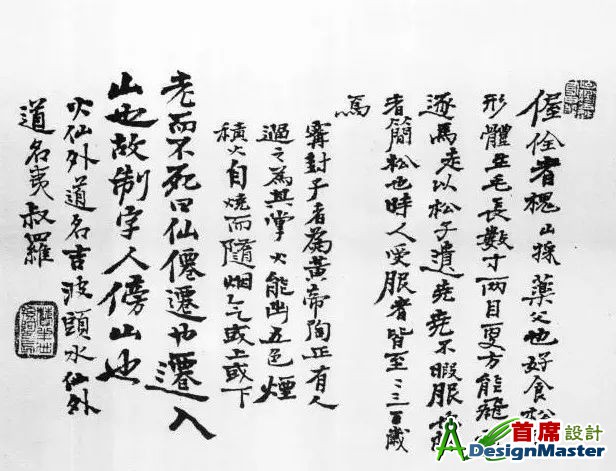 偓佺者槐山採藥父也好食松
形體生毛長數寸兩目更方能飛
逐馬走以松子遺堯堯不暇服松
者簡松也時人受服者皆至二三百歲
焉
甯封子者為黃帝陶正有人
過之為其掌火能出五色煙
積火自燒而隨烟氣或上或下
老而不死曰仙僊遷也遷入
山也故制字人傍山也
火仙外道名吉波頭水仙外
道名夷叔羅
首席設計
ADesignMaster